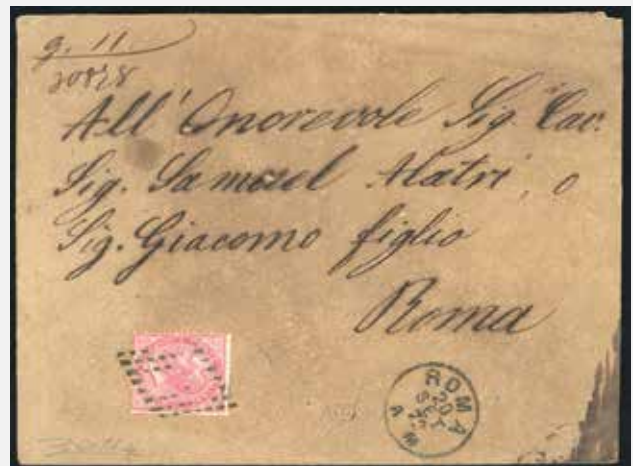 g. 11.
All' Onorevole Sig. Cav.
Sig. Samuel Alatri, o
Sig. Giacomo figlio
Roma
ROMA
20
SET